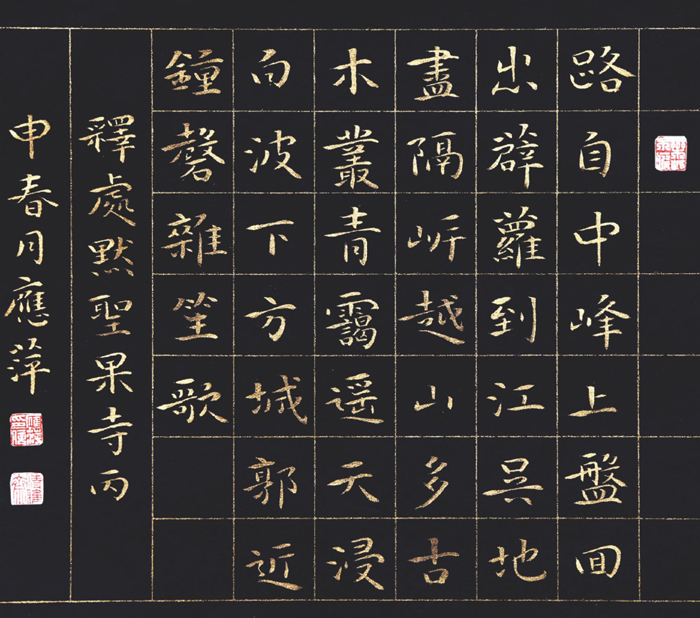 路自中峰上盤回
出薜蘿到江吳地
盡隔岸越山多古
木叢青靄遥天浸
白波下方城郭近
鐘磬雜笙歌
釋處默聖果寺丙
申春月應萍